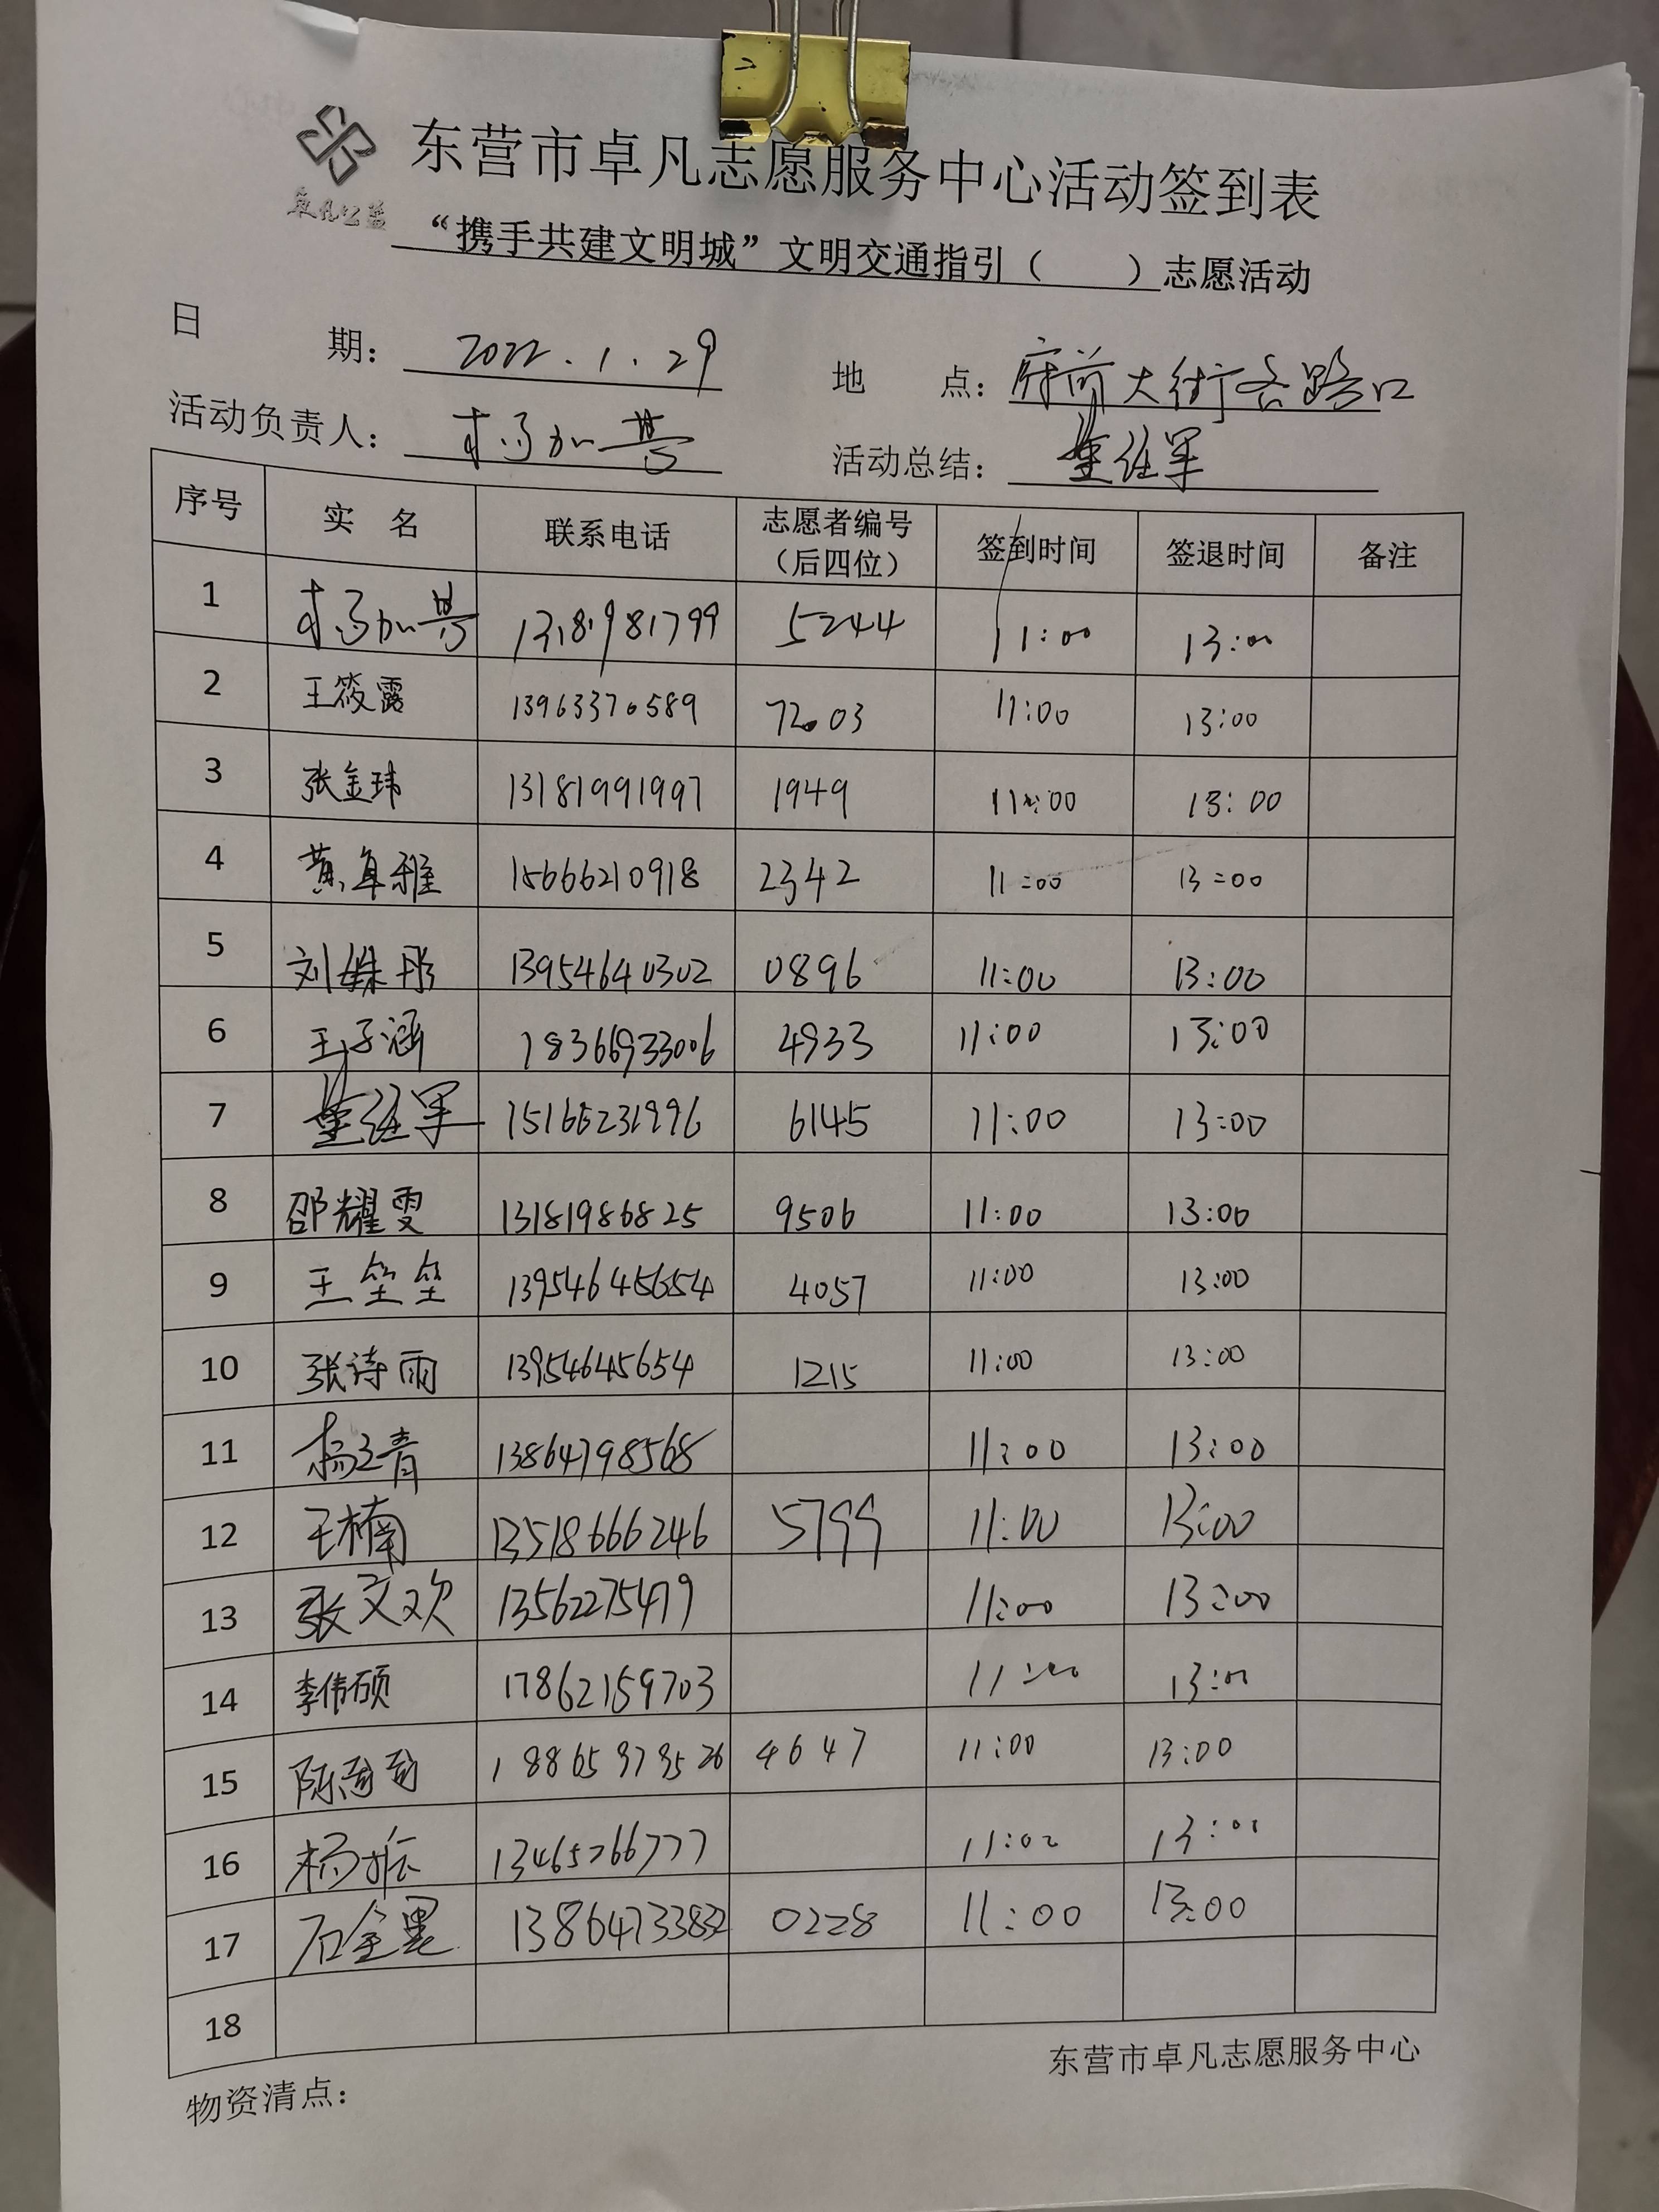 东营市卓凡志愿服务中心活动签到表
卓凡公益
“携手共建文明城”文明交通指引（　　）志愿活动
日　　期： 2022.1.29　地　　点： 府前大街各路口
活动负责人：　活动总结： 董继军
序号　实　名　联系电话　志愿者编号（后四位）　签到时间　签退时间　备注
1　13181981799　5244　11:00　13:00
2　王筱露　13963370589　7203　11:00　13:00
3　张金玮　13181991997　1949　11:00　13:00
4　黄卓雅　15666210918　2342　11:00　13:00
5　刘姝彤　13954640302　0896　11:00　13:00
6　王子涵　18366933006　4933　11:00　13:00
7　董继军　15166231996　6145　11:00　13:00
8　邵耀雯　13181986825　9506　11:00　13:00
9　王垒垒　13954645654　4057　11:00　13:00
10　张诗雨　13954645654　1215　11:00　13:00
11　13864798568　11:00　13:00
12　王楠　13518666246　5799　11:00　13:00
13　张文欢　13562275479　11:00　13:00
14　李伟硕　17862159703　11:00　13:00
15　4647　11:00　13:00
16　13465266777　13:00
17　13864733832　0228　11:00　13:00
18
东营市卓凡志愿服务中心
物资清点：